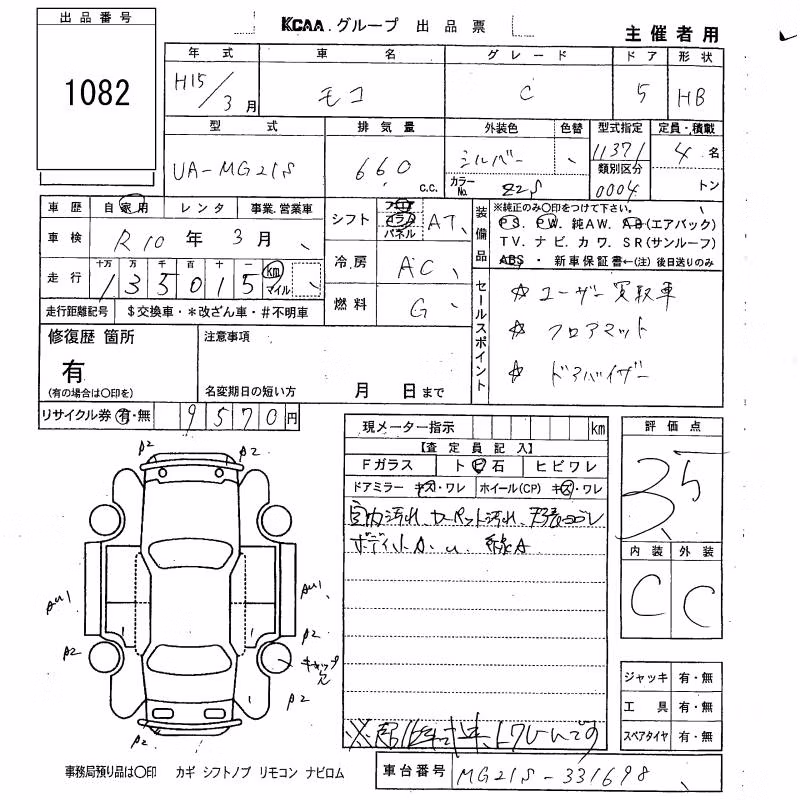 出品番号
1082
KCAA.グループ 出品票
主催者用
年式 車名 グレード ドア 形状
H15/3月 モコ C 5 HB
型式 排気量 外装色 色替 型式指定 定員・積載
UA-MG21S 660 c.c. シルバー 11371 4名
カラーNo. Z2S 類別区分 0004 トン
車歴 自家用 レンタ 事業.営業車
車検 R10年3月
走行 十万 万 千 百 十 一
135015 km マイル
走行距離記号 $交換車・*改ざん車・#不明車
シフト フロア コラム パネル AT
冷房 AC
燃料 G
装備品
※純正のみ〇印をつけて下さい。
PS. PW. 純AW. AB(エアバック)
TV. ナビ. カワ. SR(サンルーフ)
ABS・新車保証書←(注)後日送りのみ
セールスポイント
☆ ユーザー買取車
☆ フロアマット
☆ ドアバイザー
修復歴 箇所
有
(有の場合は〇印を)
注意事項
名変期日の短い方 月 日まで
リサイクル券 有・無 9570円
現メーター指示 km
【査定員記入】
Fガラス ト ビ 石 ヒビワレ
ドアミラー キズ・ワレ ホイール(CP) キズ・ワレ
評価点
3.5
内装 外装
C C
A2 A2
AU1 AU1
A2 A2
キャップ欠
A2 A2
A2
ジャッキ 有・無
工具 有・無
スペアタイヤ 有・無
事務局預り品は〇印 カギ シフトノブ リモコン ナビロム
車台番号 MG21S-331698